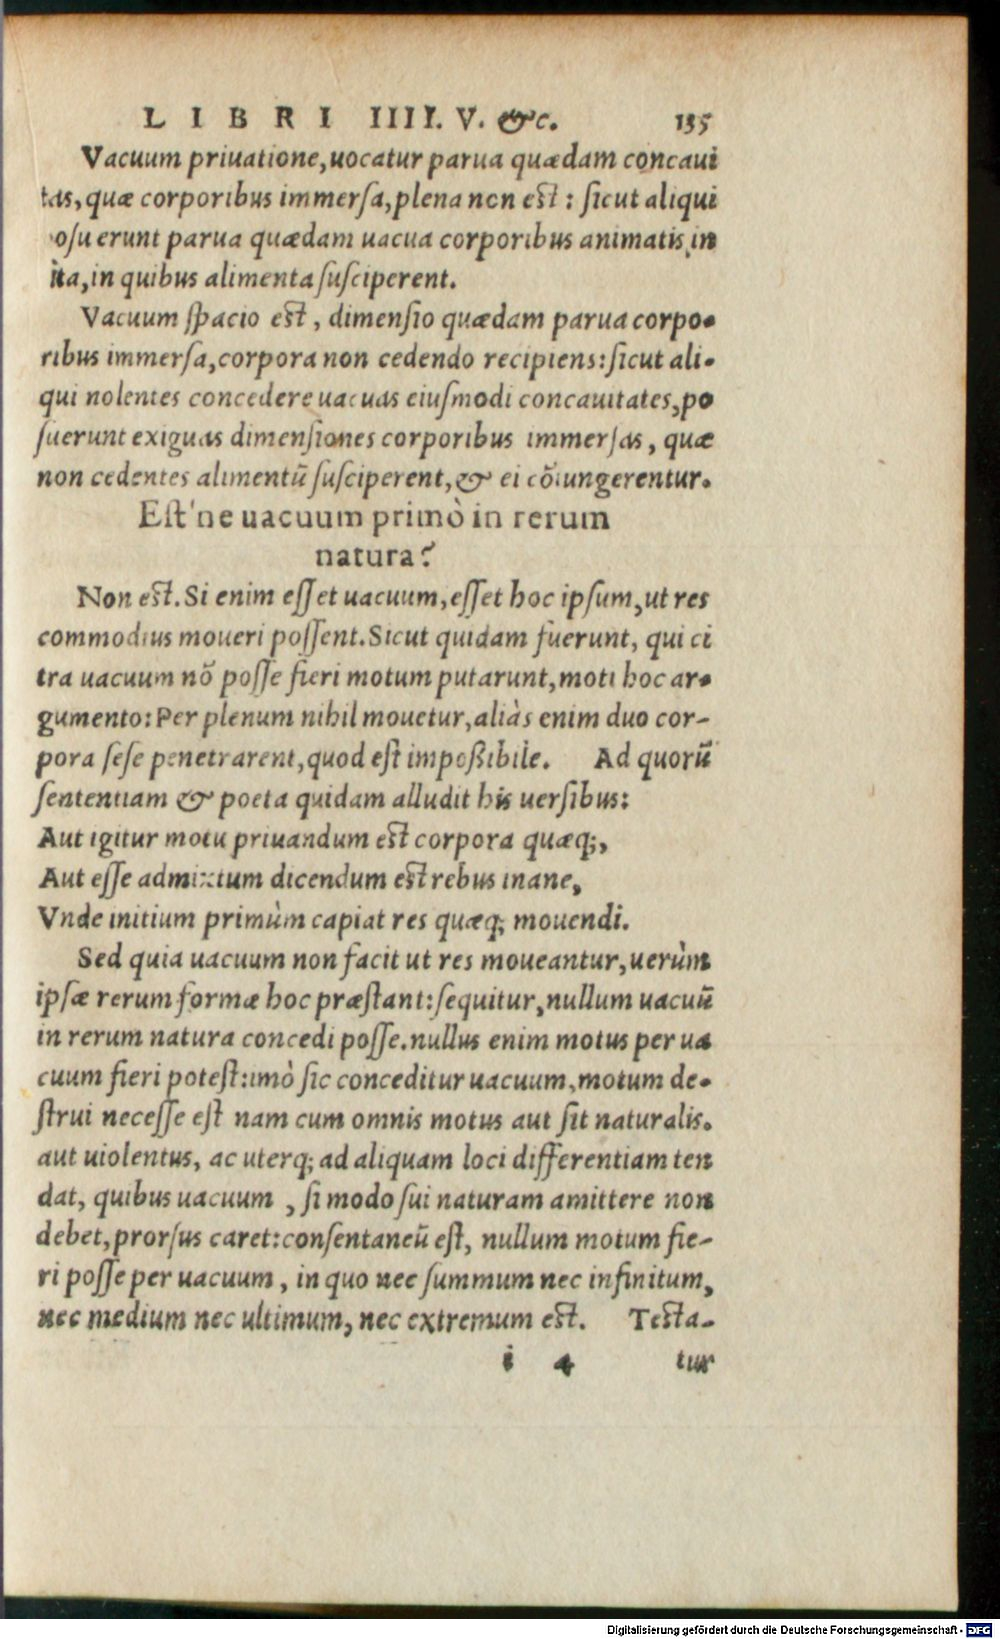 LIBRI IIII. V. &c. 135
Vacuum priuatione, uocatur parua quædam concaui
tas, quæ corporibus immersa, plena non est: sicut aliqui
osuerunt parua quædam uacua corporibus animatis in
ita, in quibus alimenta susciperent.
Vacuum spacio est, dimensio quædam parua corpo-
ribus immersa, corpora non cedendo recipiens: sicut ali-
qui nolentes concedere uacuas eiusmodi concauitates, po
suerunt exiguas dimensiones corporibus immersas, quæ
non cedentes alimentũ susciperent, & ei cõiungerentur.
Est'ne uacuum primò in rerum
natura?
Non est. Si enim esset uacuum, esset hoc ipsum, ut res
commodius moueri possent. Sicut quidam fuerunt, qui ci
tra uacuum nõ posse fieri motum putarunt, moti hoc ar-
gumento: Per plenum nihil mouetur, aliàs enim duo cor-
pora sese penetrarent, quod est impoßibile. Ad quorũ
sententiam & poeta quidam alludit his uersibus:
Aut igitur motu priuandum est corpora quæq;,
Aut esse admixtum dicendum est rebus inane,
Vnde initium primùm capiat res quæq; mouendi.
Sed quia uacuum non facit ut res moueantur, uerùm
ipsæ rerum formæ hoc præstant: sequitur, nullum uacuũ
in rerum natura concedi posse. nullus enim motus per ua
cuum fieri potest: imò sic conceditur uacuum, motum de-
strui necesse est nam cum omnis motus aut sit naturalis.
aut uiolentus, ac uterq; ad aliquam loci differentiam ten
dat, quibus uacuum, si modo sui naturam amittere non
debet, prorsus caret: consentaneũ est, nullum motum fie-
ri posse per uacuum, in quo nec summum nec infinitum,
nec medium nec ultimum, nec extremum est. Testa-
i 4 tur
Digitalisierung gefördert durch die Deutsche Forschungsgemeinschaft - DFG